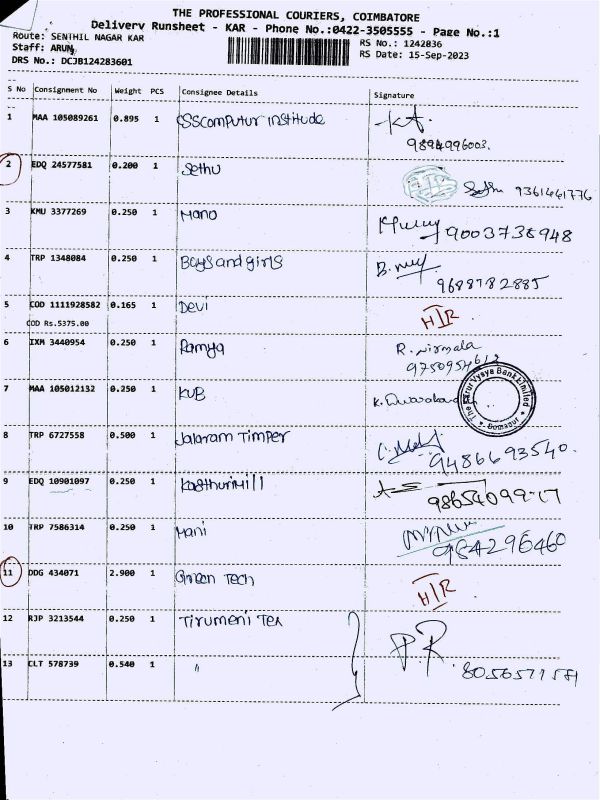 THE PROFESSIONAL COURIERS, COIMBATORE
Delivery Runsheet - KAR - Phone No.:0422-3505555 - Page No.:1
Route: SENTHIL NAGAR KAR
RS No.: 1242836
Staff: ARUN
RS Date: 15-Sep-2023
DRS No.: DCJB124283601
S No Consignment No Weight PCS Consignee Details Signature
1 MAA 105089261 0.895 1 CSScomputur institude
9894996003.
2 EDQ 24577581 0.200 1 Sethu Sethu 9361441776
3 KMU 3377269 0.250 1 Mano 9003738948
4 TRP 1348084 0.250 1 Boys and girls
9688782885
5 COD 1111928582 0.165 1 Devi H/R
COD Rs.5375.00
6 IXM 3440954 0.250 1 Ramya R. Nirmala
The Karur Vysya Bank Limited
Somanur
7 MAA 105012132 0.250 1 KVB
8 TRP 6727558 0.500 1 Jalaram Timper
9486693540.
9 EDQ 10901097 0.250 1 Kasthurimill
10 TRP 7586314 0.250 1 Mani
984296460
11 DDG 434071 2.900 1 Green Tech H/R
12 RJP 3213544 0.250 1 Tirumeni Tex P.R.
13 CLT 578739 0.540 1 "